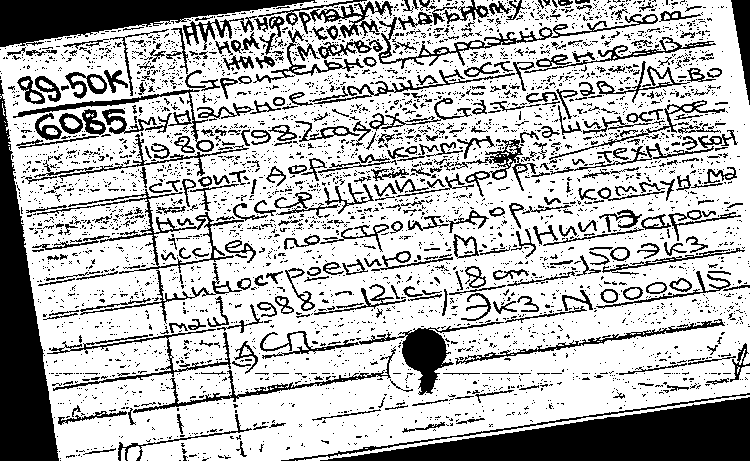 НИИ информации по
ному и коммунальному маш
нию (Москва).
89-50К
6085
Строительное, дорожное и ком-
мунальное машиностроение в
1980-1987 годах. Стат. справ. / М-во
строит., дор. и коммун. машинострое-
ния СССР, ЦНИИ информ. и техн.-экон
исслед. по строит., дор. и коммун. ма
шиностроению. - М.: ЦНИИТЭстрой-
маш, 1988. - 121 с.; 18 см. - 150 экз.
Экз. N 000015.
ДСП.
10